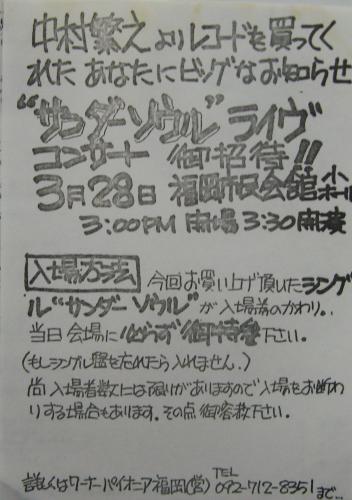 中村繁之よりレコードを買ってく
れたあなたにビッグなお知らせ
“サンダーソウル”ライヴ
コンサート 御招待!!
3月28日 福岡市民会館小ホール
3:00PM 開場 3:30開演
入場方法 今回お買い上げ頂いたシング
ル“サンダーソウル”が入場券のかわり。
当日会場に必らず御持参下さい。
(もしシングル盤を忘れたら入れません。)
尚入場者数には限りがありますので入場をお断わ
りする場合もあります。その点御容赦下さい。
詳しくはワーナーパイオニア福岡(営) TEL 092-712-8351まで…